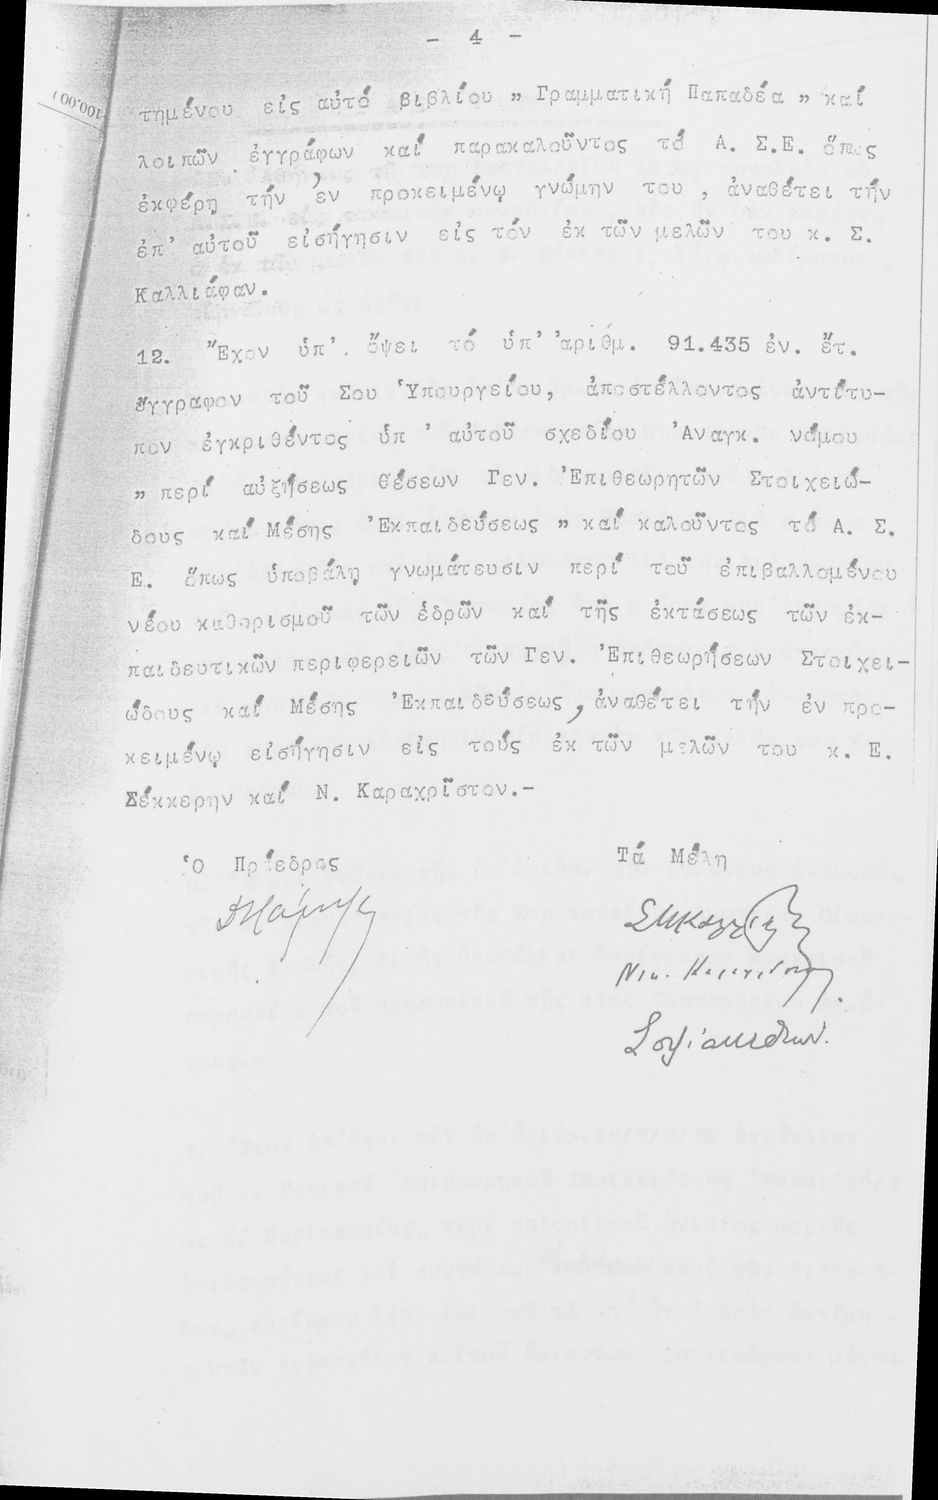 - 4 -
τημένου εἰς αὐτό βιβλίου „ Γραμματική Παπαδέα „ καί
λοιπῶν ἐγγράφων καί παρακαλοῦντος τό Α. Σ.Ε. ὅπως
ἐκφέρῃ τήν ἐν προκειμένῳ γνώμην του , ἀναθέτει τήν
ἐπ' αὐτοῦ εἰσήγησιν εἰς τόν ἐκ τῶν μελῶν του κ. Σ.
Καλλιάφαν.
12. Ἔχον ὑπ' ὄψει τό ὑπ' ἀριθμ. 91.435 ἐν. ἔτ.
ἔγγραφον τοῦ Σου Ὑπουργείου, ἀποστέλλοντος ἀντίτυ-
πον ἐγκριθέντος ὑπ' αὐτοῦ σχεδίου Ἀναγκ. νόμου
„ περί αὐξήσεως θέσεων Γεν. Ἐπιθεωρητῶν Στοιχειώ-
δους καί Μέσης Ἐκπαιδεύσεως „ καί καλοῦντος τό Α. Σ.
Ε. ὅπως ὑποβάλῃ γνωμάτευσιν περί τοῦ ἐπιβαλλομένου
νέου καθορισμοῦ τῶν ἑδρῶν καί τῆς ἐκτάσεως τῶν ἐκ-
παιδευτικῶν περιφερειῶν τῶν Γεν. Ἐπιθεωρήσεων Στοιχει-
ώδους καί Μέσης Ἐκπαιδεύσεως, ἀναθέτει τήν ἐν προ-
κειμένῳ εἰσήγησιν εἰς τούς ἐκ τῶν μελῶν του κ. Ε.
Σέκκερην καί Ν. Καραχρῖστον.-
Ὁ Πρόεδρος
Τά Μέλη